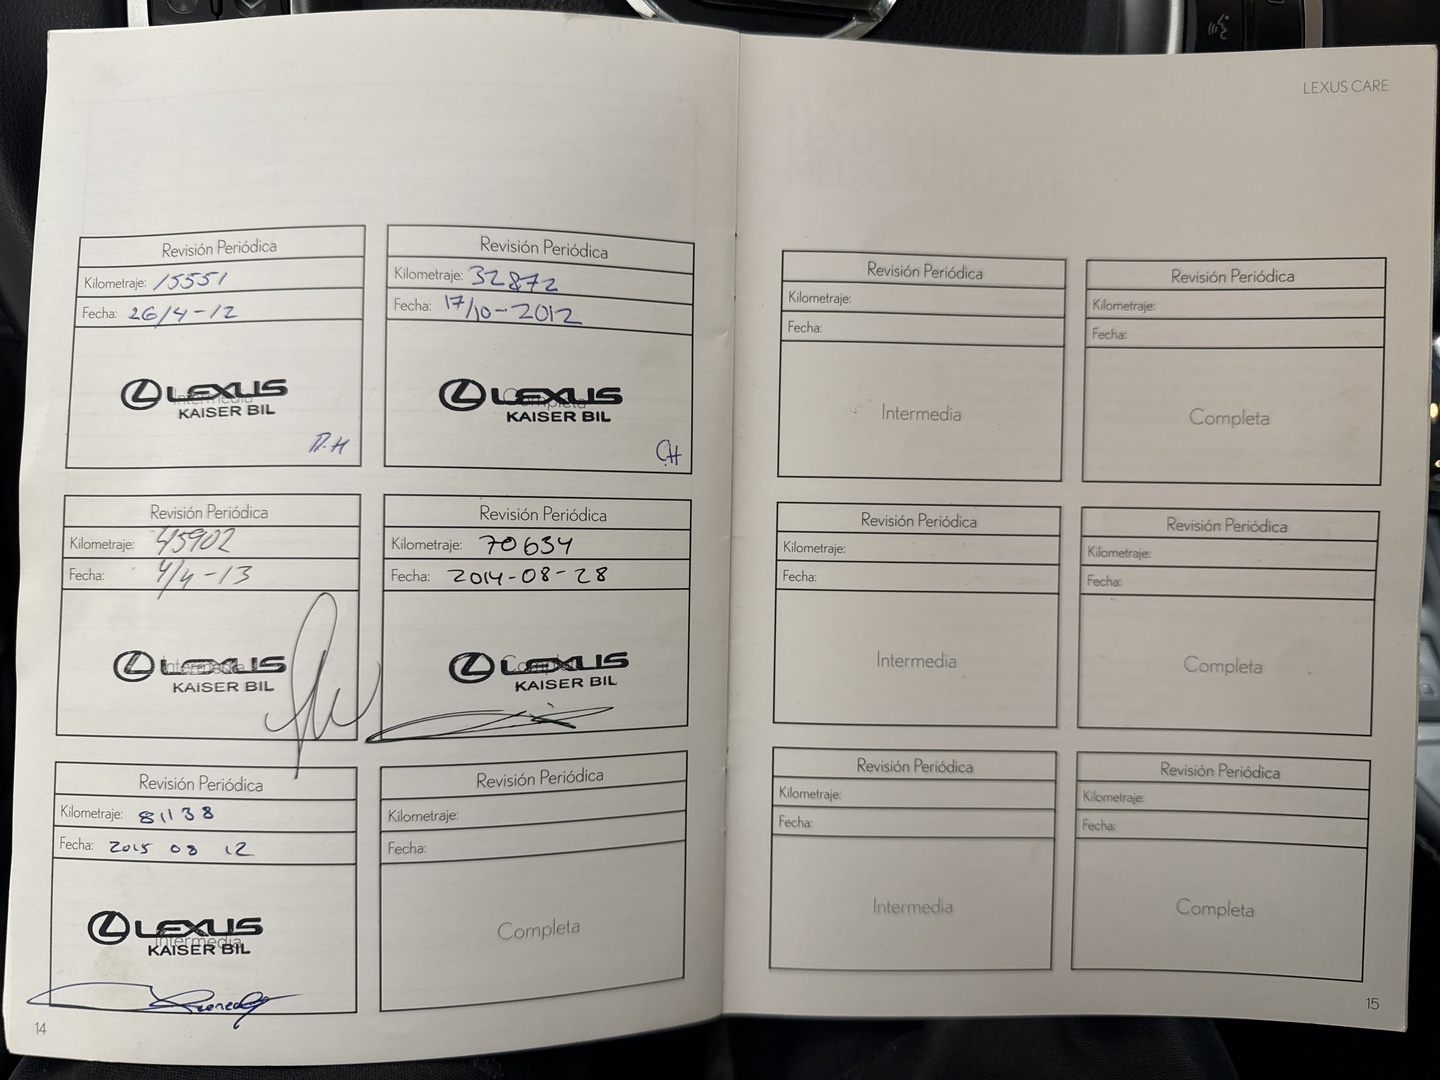 Revisión Periódica
Kilometraje: 15551
Fecha: 26/4-12
Intermedia
LEXUS
KAISER BIL
Revisión Periódica
Kilometraje: 32872
Fecha: 17/10-2012
Completa
LEXUS
KAISER BIL
CH
Revisión Periódica
Kilometraje: 45902
Fecha: 4/4-13
Intermedia
LEXUS
KAISER BIL
Revisión Periódica
Kilometraje: 70634
Fecha: 2014-08-28
Completa
LEXUS
KAISER BIL
Revisión Periódica
Kilometraje: 81138
Fecha: 2015 08 12
LEXUS
Intermedia
KAISER BIL
Revisión Periódica
Kilometraje:
Fecha:
Completa
14
LEXUS CARE
Revisión Periódica
Kilometraje:
Fecha:
Intermedia
Revisión Periódica
Kilometraje:
Fecha:
Completa
Revisión Periódica
Kilometraje:
Fecha:
Intermedia
Revisión Periódica
Kilometraje:
Fecha:
Completa
Revisión Periódica
Kilometraje:
Fecha:
Intermedia
Revisión Periódica
Kilometraje:
Fecha:
Completa
15